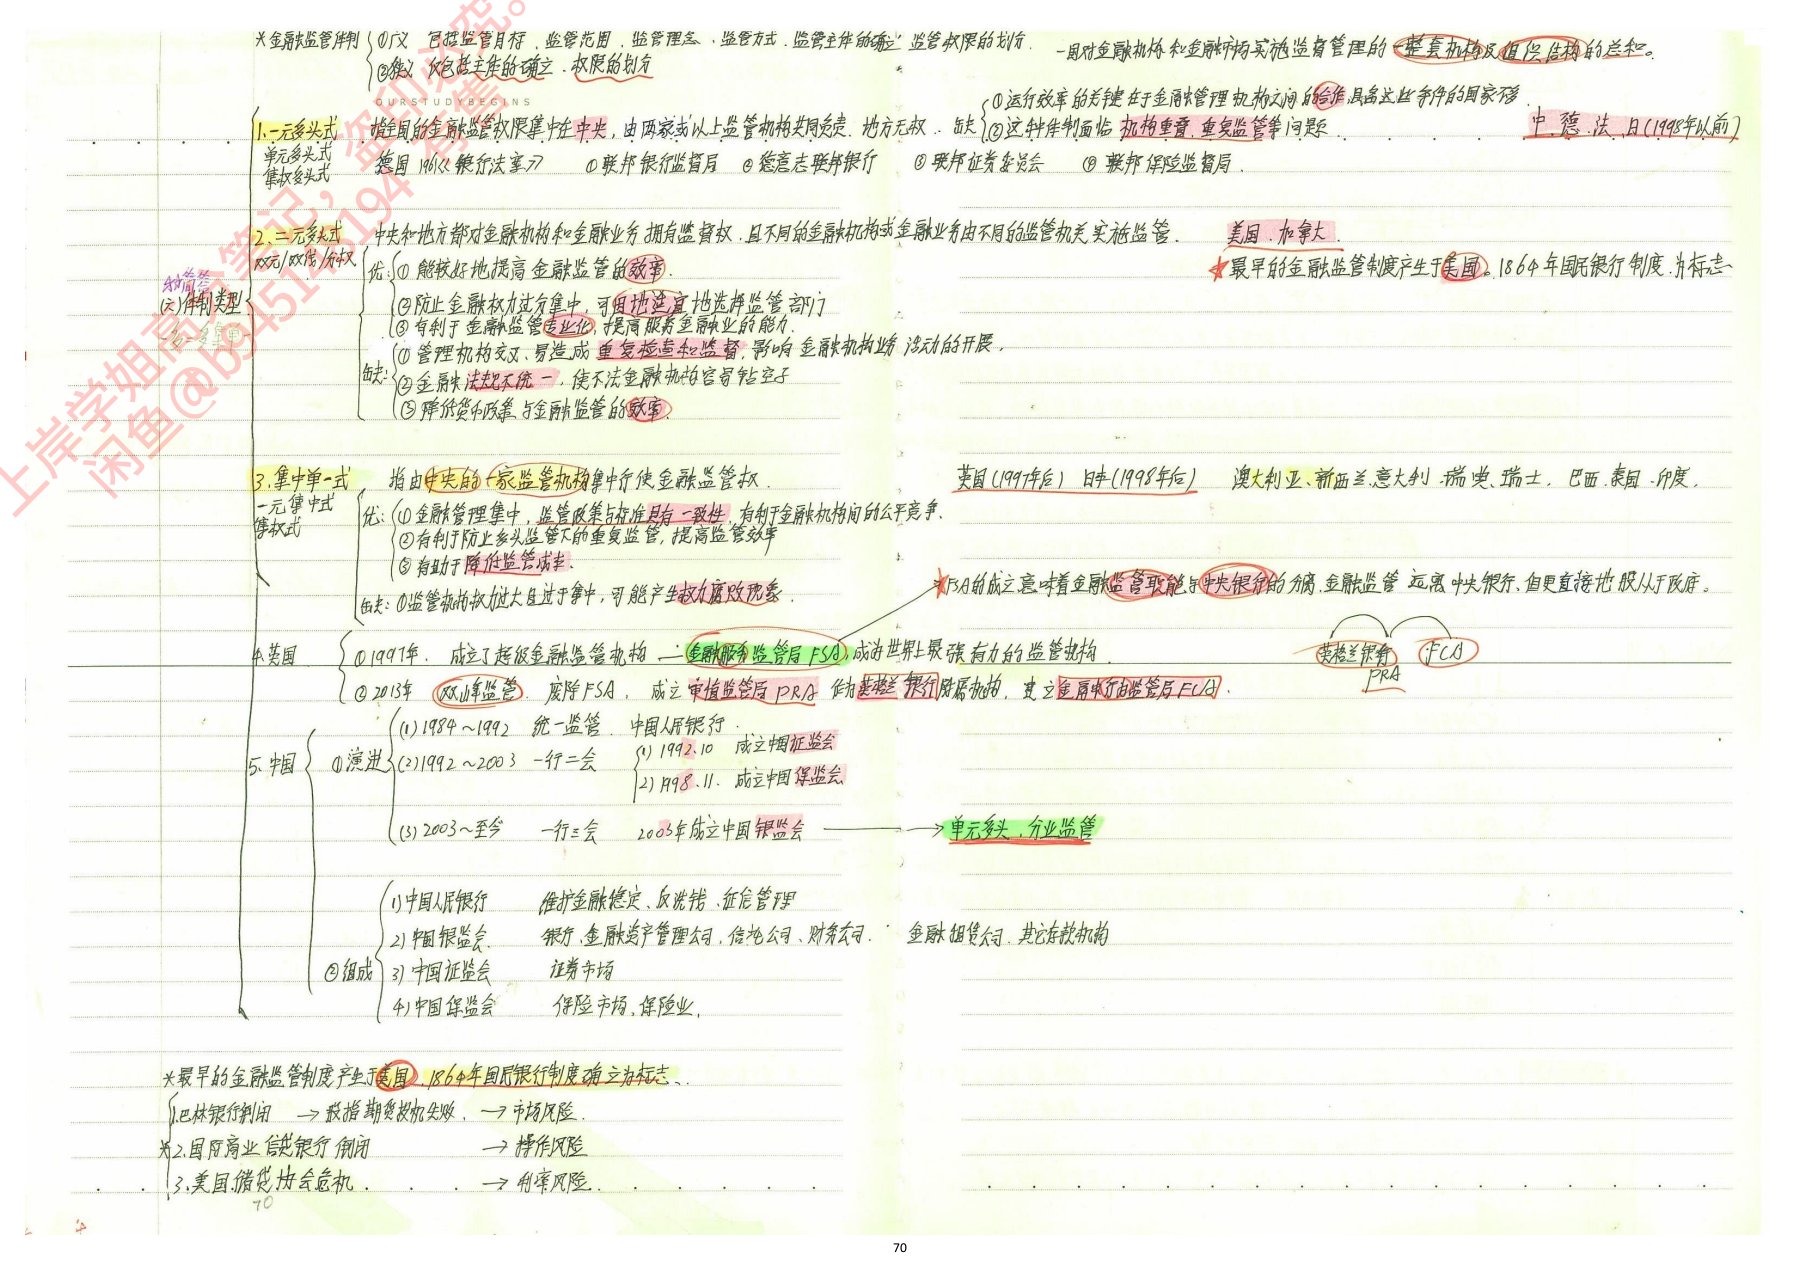 *金融监管体制 ①广义 包括监管目标、监管范围、监管理念、监管方式、监管主体的确立、监管权限的划分. 一国对金融机构和金融市场实施监督管理的一整套机构及组织结构的总和。
②狭义 仅包括主体的确立、权限的划分
OURSTUDYBEGINS
1.一元多头式 指全国的金融监管权限集中在中央, 由两家或以上监管机构共同负责. 地方无权. 缺 ①运行效率的关键在于金融管理机构之间的合作,具备这些条件的国家不多.
②这种体制面临机构重叠、重复监管等问题 中、德、法、日(1998年以前)
单元多头式
集权多头式
德国 1961《银行法案》 ①联邦银行监督局 ②德意志联邦银行 ③联邦证券委员会 ④联邦保险监督局.
2.二元多头式 中央和地方都对金融机构和金融业务拥有监督权, 且不同的金融机构或金融业务由不同的监管机关实施监管. 美国.加拿大.
双元/双线/分权
优: ①能较好地提高金融监管的效率. ★最早的金融监管制度产生于美国。1864年国民银行制度.为标志
(六)体制类型
②防止金融权力过分集中, 可因地适宜地选择监管部门
③有利于金融监管专业化, 提高服务金融业的能力.
缺: ①管理机构交叉、易造成重复检查和监督, 影响金融机构业务活动的开展.
②金融法规不统一, 使不法金融机构容易钻空子
③降低货币政策与金融监管的效率.
3.集中单一式 指由中央的一家监管机构集中行使金融监管权. 英国(1997年后) 日本(1998年后) 澳大利亚、新西兰、意大利、瑞典、瑞士. 巴西.泰国.印度.
一元集中式
集权式
优: ①金融管理集中, 监管政策与标准具有一致性, 有利于金融机构间的公平竞争.
②有利于防止多头监管下的重复监管, 提高监管效率
③有助于降低监管成本.
缺: ①监管机构权力过大且过于集中, 可能产生权力腐败现象. ★FSA的成立意味着金融监管职能与中央银行的分离.金融监管远离中央银行、但更直接地服从于政府。
4.英国 ①1997年. 成立了超级金融监管机构 — 金融服务监管局 FSA, 成为世界上最强有力的监管机构. 英格兰银行 FCA
PRA
②2013年 双峰监管. 废除FSA, 成立审慎监管局PRA 作为英格兰银行附属机构, 建立金融行为监管局FCA.
5.中国 ①演进 (1)1984~1992 统一监管 中国人民银行.
(2)1992~2003 一行二会 1) 1992.10 成立中国证监会
2) 1998.11. 成立中国保监会
(3)2003~至今 一行三会 2003年成立中国银监会 → 单元多头、分业监管
②组成 1)中国人民银行 维护金融稳定、反洗钱、征信管理
2)中国银监会. 银行、金融资产管理公司, 信托公司、财务公司. 金融租赁公司, 其它存款机构
3)中国证监会 证券市场
4)中国保监会 保险市场、保险业.
*最早的金融监管制度产生于美国、1864年国民银行制度确立为标志、
1.巴林银行倒闭 → 股指期货投机失败. → 市场风险.
*2.国际商业信贷银行倒闭 → 操作风险
3.美国储贷协会危机. → 利率风险.
70
上岸学姐高分笔记，盗印必究。
闲鱼@b945148194 有售
70